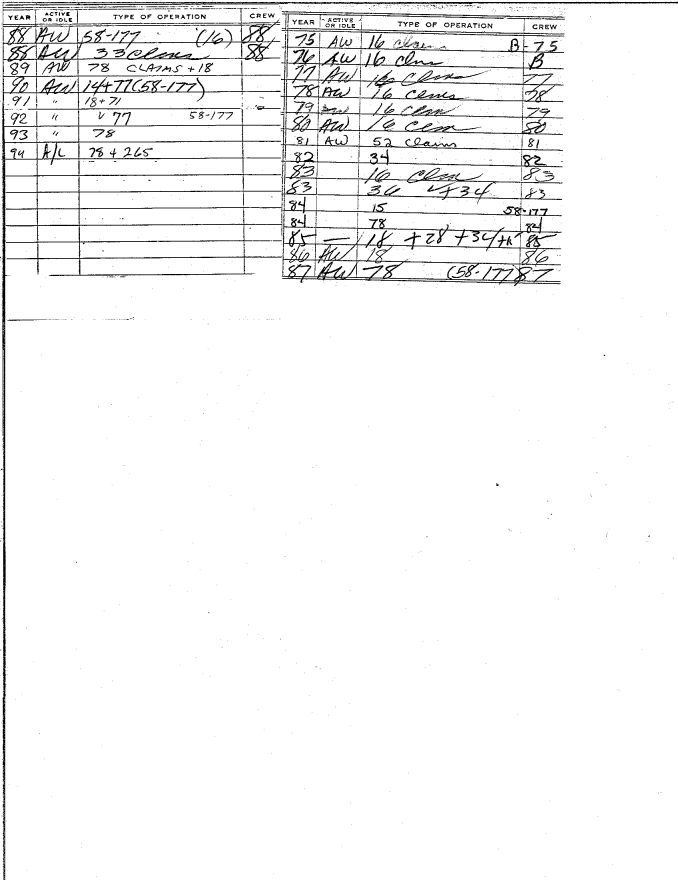 YEAR ACTIVE OR IDLE TYPE OF OPERATION CREW
88 AW 58-177 (16) 88
88 AW 33 Clms 88
89 AW 78 CLAIMS + 18
90 AW 14+77(58-177)
91 " 18+71
92 " √ 77 58-177
93 " 78
94 A/L 78 + 265
YEAR ACTIVE OR IDLE TYPE OF OPERATION CREW
75 AW 16 claims B-75
76 AW 16 clms B
77 AW 16 Clms 77
78 AW 16 Clms 78
79 AW 16 Clm 79
80 AW 16 Clm 80
81 AW 52 Claims 81
82 34 82
83 16 Clm 83
83 36 √+34 83
84 15 58-177
84 78 84
85 — 18 +28 +34 85
86 AW 18 86
87 AW 78 (58-177) 87